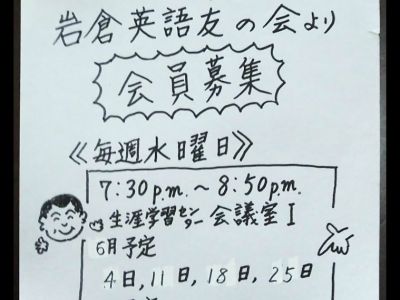 岩倉英語友の会より
会員募集
《毎週水曜日》
7:30p.m.～8:50p.m.
生涯学習センター 会議室I
6月予定
4日,11日,18日,25日